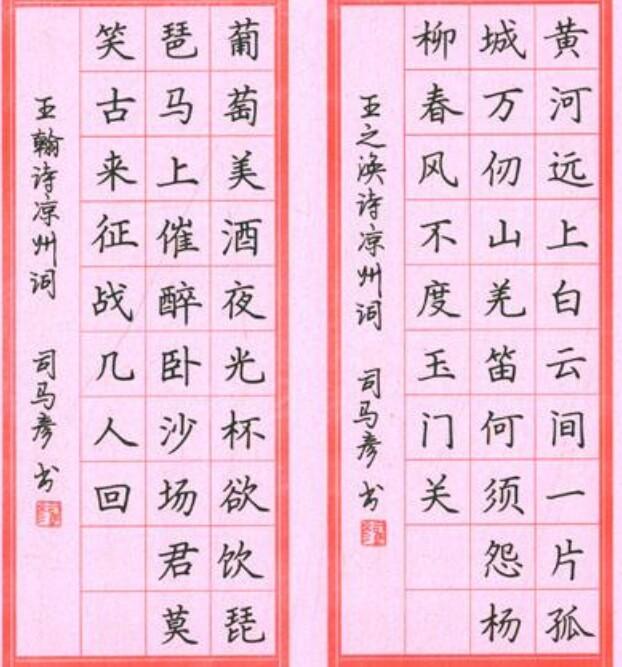 黄河远上白云间一片孤
城万仞山羌笛何须怨杨
柳春风不度玉门关
王之涣诗凉州词 司马彦书
葡萄美酒夜光杯欲饮琵
琶马上催醉卧沙场君莫
笑古来征战几人回
王翰诗凉州词 司马彦书